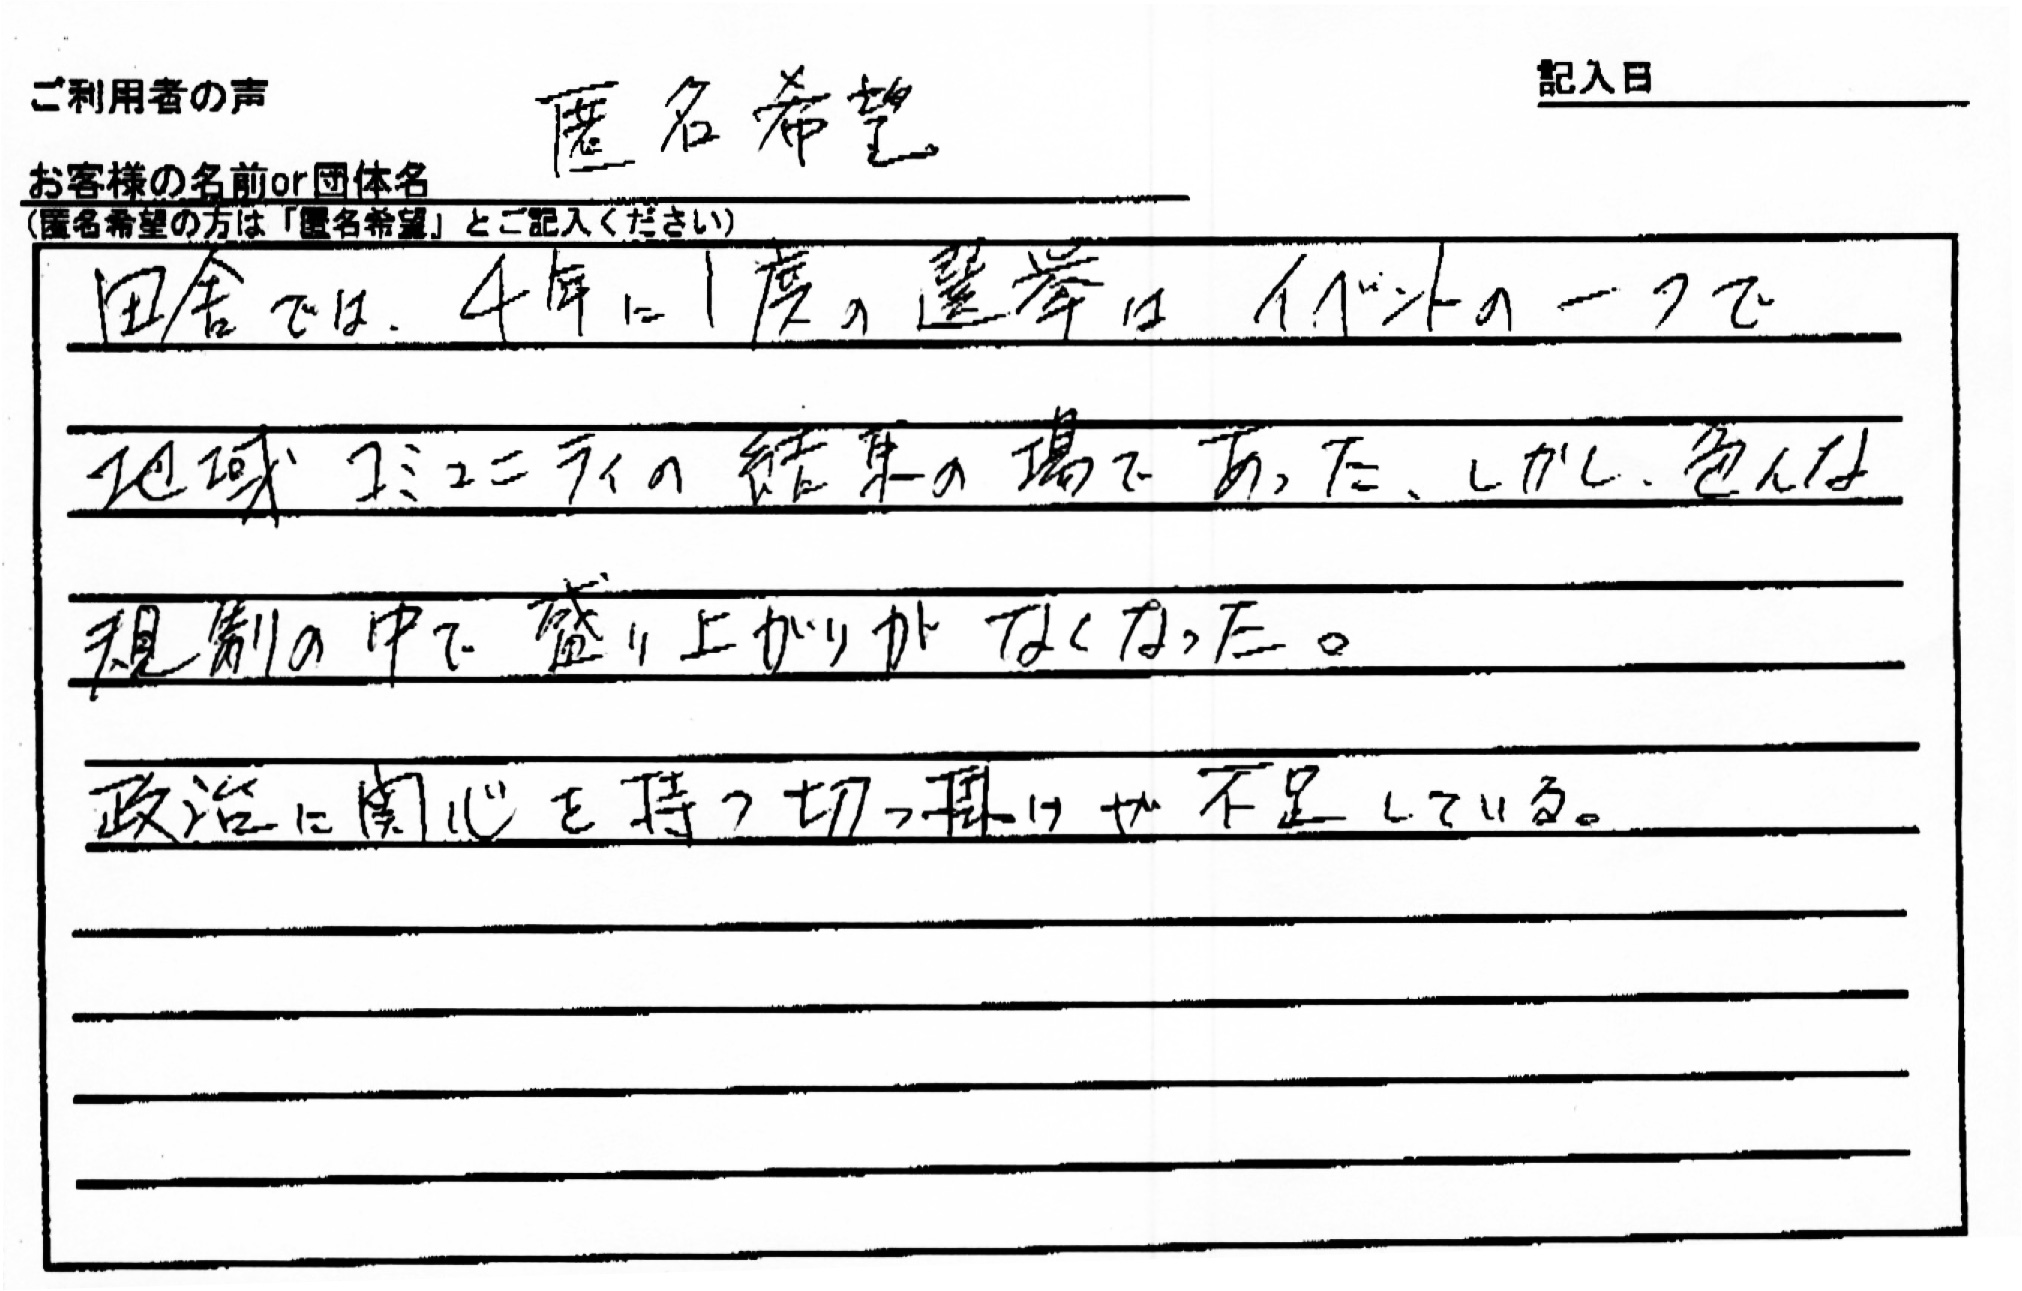 ご利用者の声
記入日
お客様の名前or団体名 匿名希望
(匿名希望の方は「匿名希望」とご記入ください)
田舎では、4年に1度の選挙は イベントの一つで
地域コミュニティの結束の場であった、しかし、色んな
規制の中で盛り上がりがなくなった。
政治に関心を持つ切っ掛けが不足している。